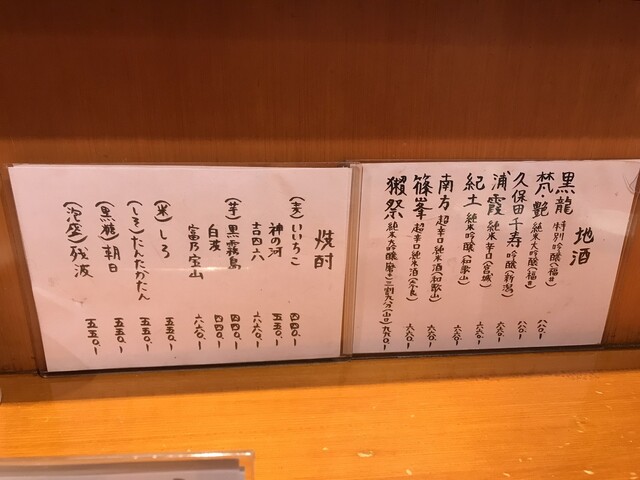 地酒
黒龍 特別吟醸(福井) 八八〇ー
梵・艶 純米大吟醸(福井) 八八〇ー
久保田千寿 吟醸(新潟) 六六〇ー
浦霞 純米辛口(宮城) 六六〇ー
紀土 純米吟醸(和歌山) 六六〇ー
南方 超辛口純米酒(和歌山) 六六〇ー
篠峯 超辛口純米酒(奈良) 六六〇ー
獺祭 純米大吟醸磨き三割九分(山口) 九九〇ー
焼酎
(麦)いいちこ 四四〇ー
神の河 五五〇ー
吉四六 六六〇ー
(芋)黒霧島 四四〇ー
白波 四四〇ー
富乃宝山 六六〇ー
(米)しろ 五五〇ー
(しそ)たんたかたん 五五〇ー
(黒糖)朝日 五五〇ー
(泡盛)残波 五五〇ー